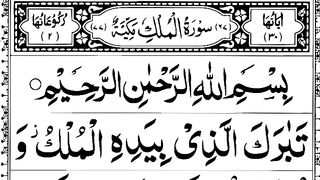 اٰيَاتُهَا (٣٠) (٦٧) سُوْرَةُ الْمُلْكِ مَكِّيَّةٌ (٧٧) رُكُوْعَاتُهَا (٢)
بِسْمِ اللّٰهِ الرَّحْمٰنِ الرَّحِيْمِ
تَبٰرَكَ الَّذِیْ بِيَدِهِ الْمُلْكُ ز وَ